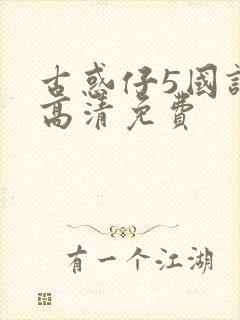 古惑仔5國
高清免費
有一个江湖